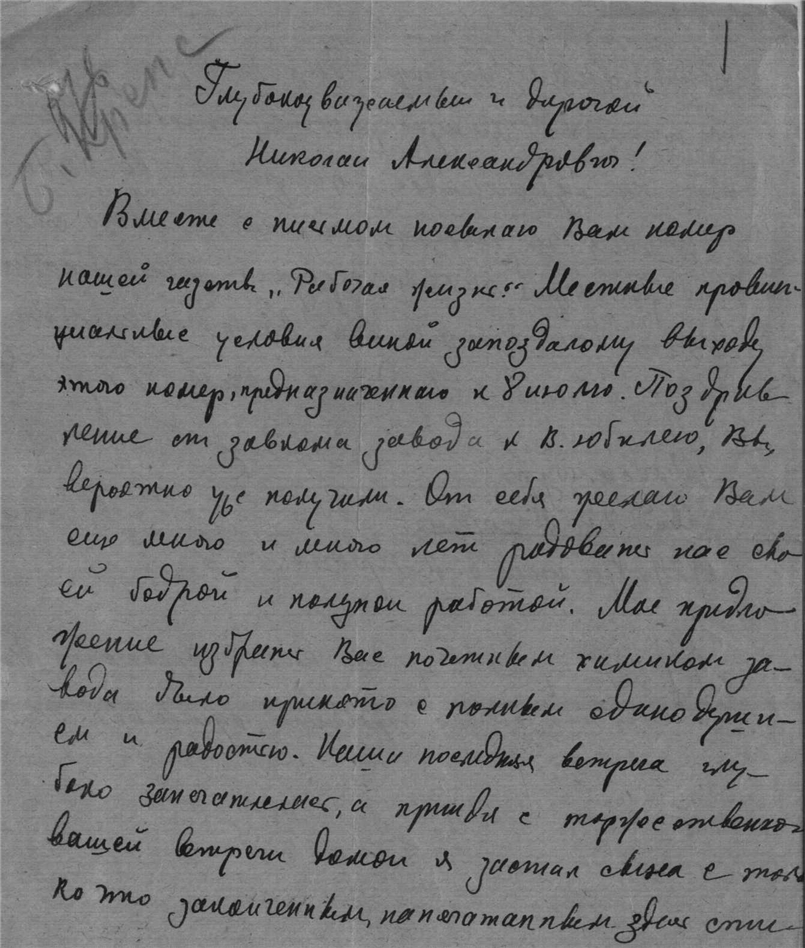 1
Б. Крепс
Глубокоуважаемый и дорогой
Николай Александрович!
Вместе с письмом посылаю Вам номер
нашей газеты „Рабочая жизнь“. Местные провин-
циальные условия виной запоздалому выходу
этого номера, предназначеннаго к 8 июлю. Поздрав-
ление от завкома завода к В. юбилею, Вы,
вероятно уже получили. От себя желаю Вам
еще много и много лет радовать нас сво-
ей бодрой и полезной работой. Мое предло-
жение избрать Вас почетным химиком за-
вода было принято с полным единодуши-
ем и радостью. Наша последняя встреча глу-
боко запечатлелась, а придя с торжественной
вашей встречи домой я застал сына с толь-
ко что законченным, напечатанным здесь